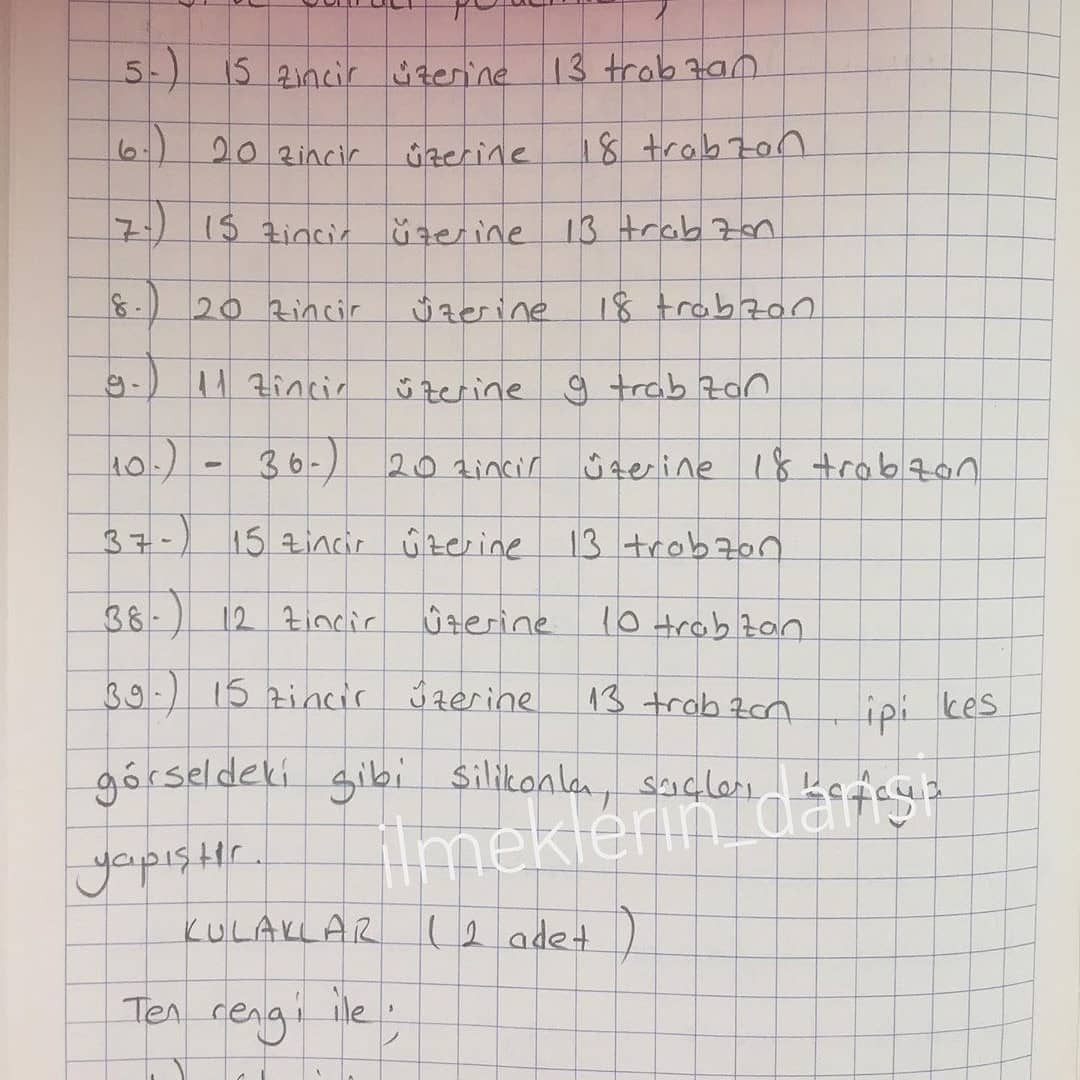 5-) 15 zincir üzerine 13 trabzan
6-) 20 zincir üzerine 18 trabzan
7-) 15 zincir üzerine 13 trabzan
8-) 20 zincir üzerine 18 trabzan
9-) 11 zincir üzerine 9 trabzan
10-) - 36-) 20 zincir üzerine 18 trabzan
37-) 15 zincir üzerine 13 trabzan
38-) 12 zincir üzerine 10 trabzan
39-) 15 zincir üzerine 13 trabzan. ipi kes
görseldeki gibi silikonla, saçları kafaya
yapıştır.
ilmeklerin_dansi
KULAKLAR (2 adet)
Ten rengi ile;